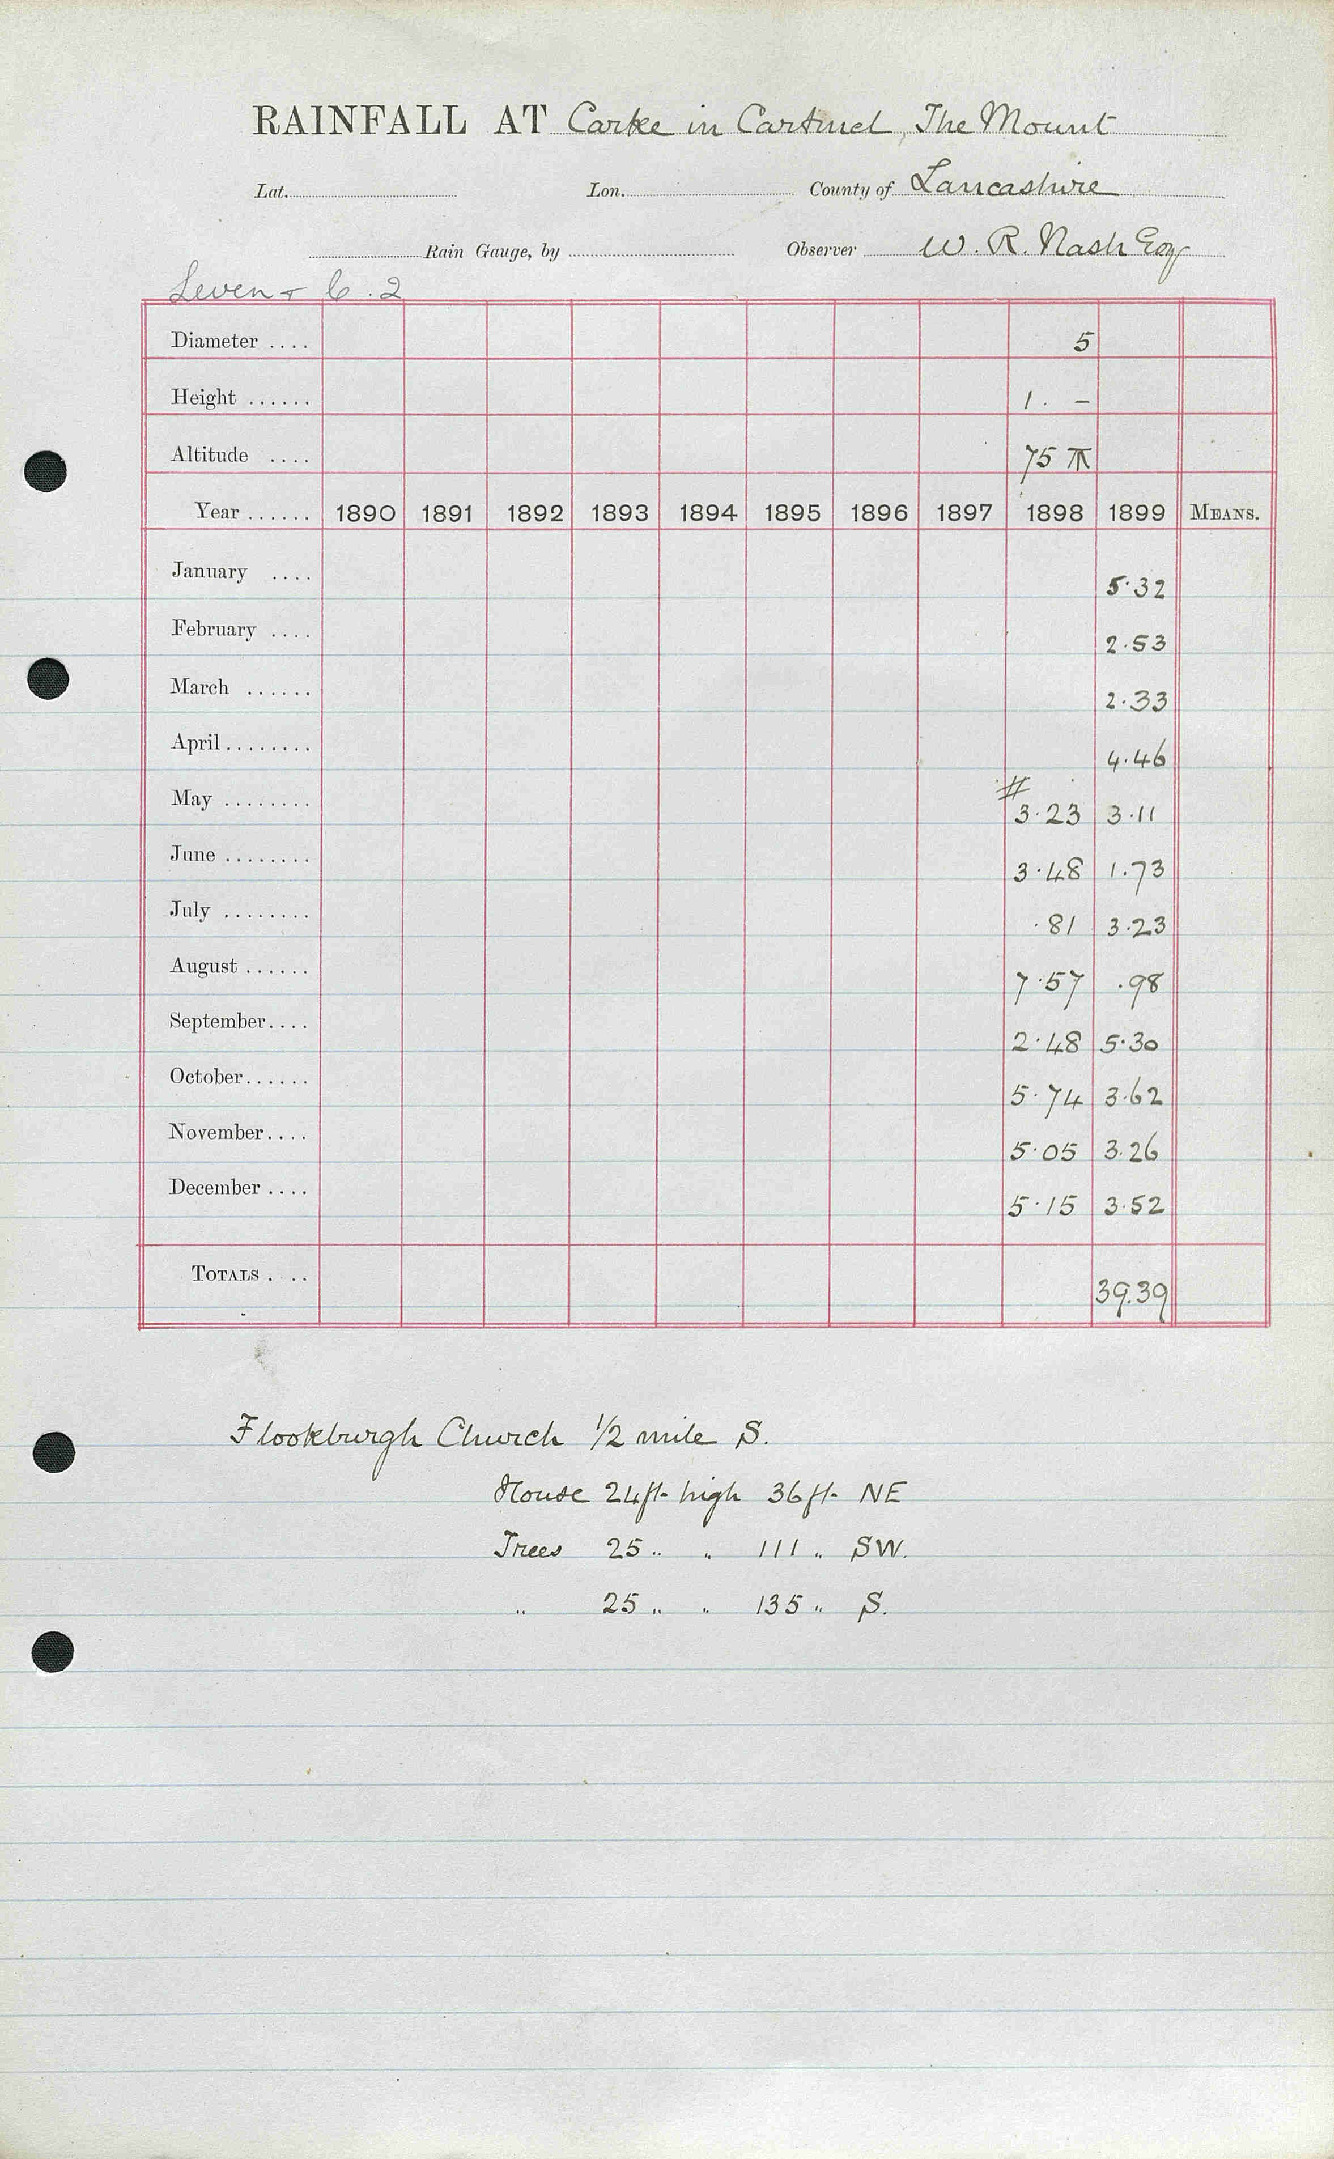 RAINFALL AT Carke in Cartmel, The Mount
Lat. Lon. County of Lancashire
Rain Gauge, by Observer W. R. Nash Esq
Leven + C. 2
Diameter .... 5
Height ...... 1. –
Altitude .... 75
Year ...... 1890 1891 1892 1893 1894 1895 1896 1897 1898 1899 MEANS.
January .... 5.32
February .... 2.53
March ...... 2.33
April ........ 4.46
#
May ........ 3.23 3.11
June ........ 3.48 1.73
July ........ .81 3.23
August ...... 7.57 .98
September.... 2.48 5.30
October...... 5.74 3.62
November.... 5.05 3.26
December .... 5.15 3.52
TOTALS . .. 39.39
Flookburgh Church 1/2 mile S.
House 24ft. high 36ft. NE
Trees 25 " " 111 " SW.
" 25 " " 135 " S.